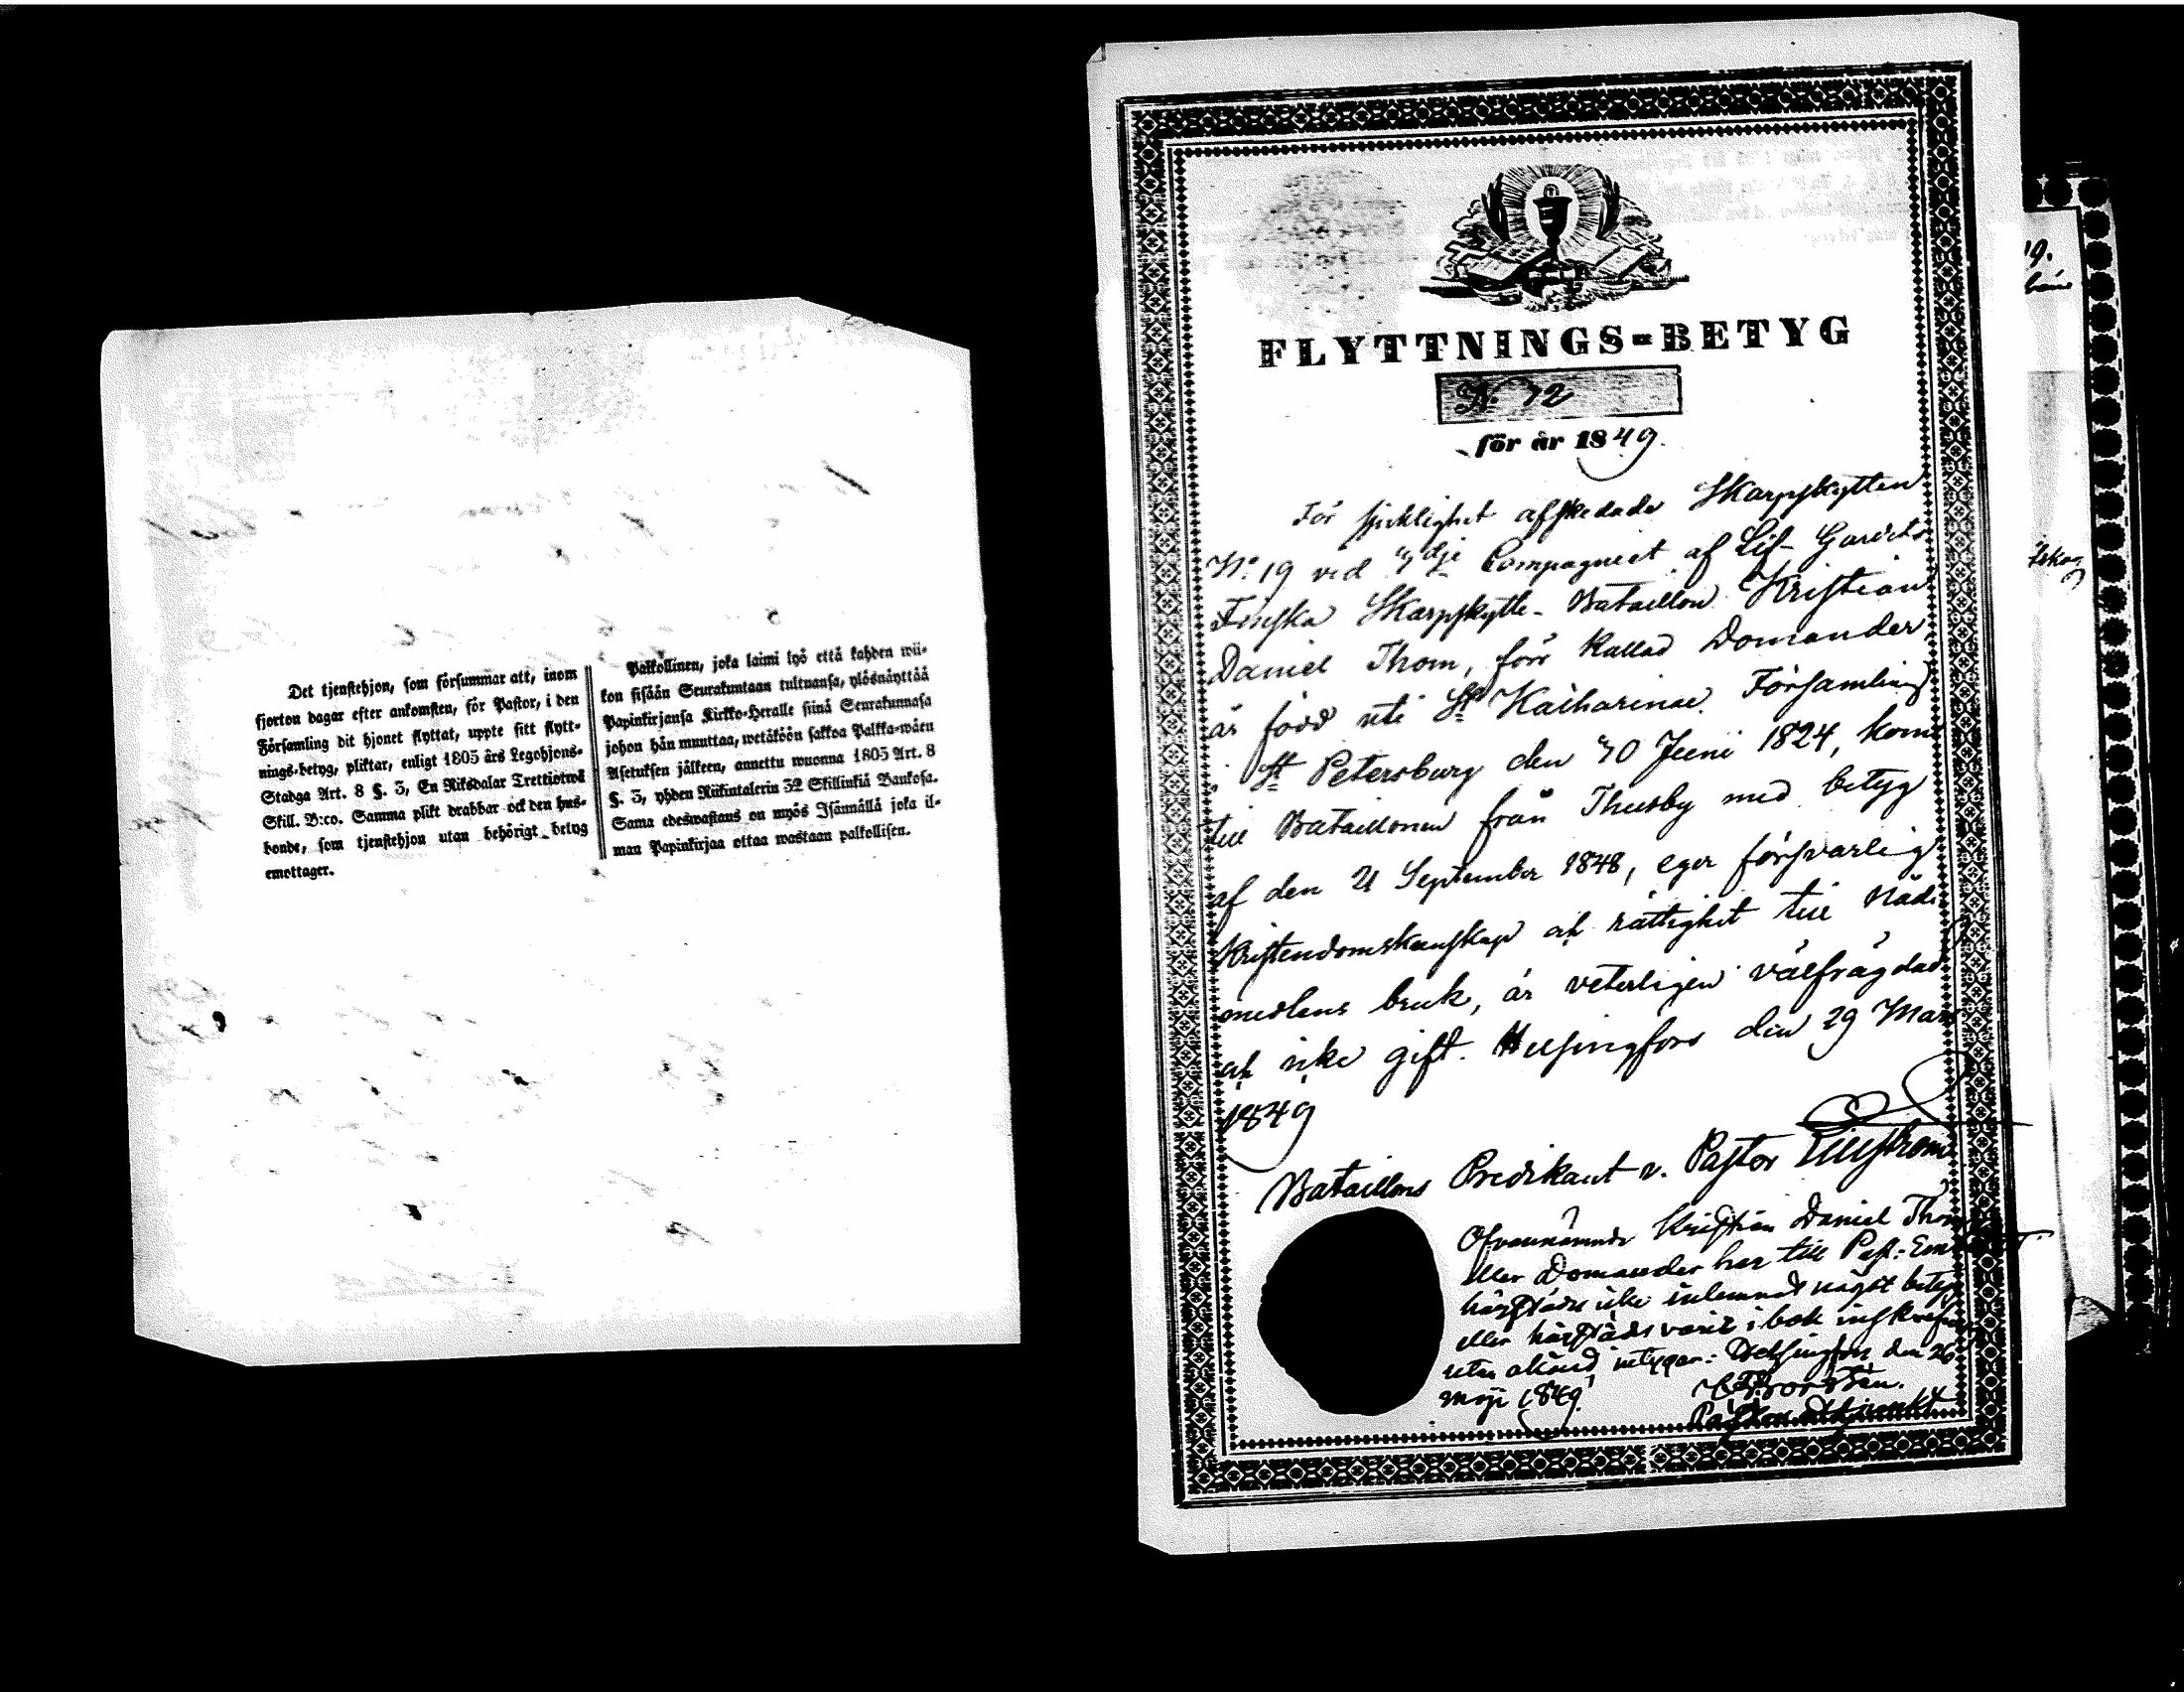 Det tjenstehjon, som försummar att, inom
fjorton dagar efter ankomsten, för Pastor, i den
Församling dit hjonet flyttat, uppte sitt flytt-
nings-betyg, pliktar, enligt 1805 års Legohjons-
Stadga Art. 8 §. 3, En Riksdalar Trettiotwå
Skill. B:co. Samma plikt drabbar ock den hus-
bonde, som tjenstehjon utan behörigt betyg
emottager.
Palkollinen, joka laimi lyö että kahden wii-
kon sisään Seurakuntaan tultuansa, ylösnäyttää
Papinkirjansa Kirkko-Heralle siinä Seurakunnasa
johon hän muuttaa, wetäköön sakkoa Palkka-wäen
Asetuksen jälkeen, annettu wuonna 1805 Art. 8
§. 3, yhden Riikintalerin 32 Skillinkiä Bankosa.
Sama edeswastaus on myös Isännällä joka il-
man Papinkirjaa ottaa wastaan palkollisen.
FLYTTNINGS-BETYG
N. 72
för år 1849.
För sjuklighet afskedade Skarpskytten
No. 19 ved 4dje Compagniet af Lif-Gardets
Finska Skarpskytte-Bataillon Kristian
Daniel Thom, förr kallad Domander,
är född uti St Katharinae Församling
i St Petersburg den Juni 1824, kom
till Bataillonen från Thusby med betyg
af den 21 September 1848, eger försvarlig
Kristendomskunskap och rättighet till Nåde
medlens bruk, är veterligen välfrägdad
och icke gift. Helsingfors den 29 Mars
1849
Bataillons Predikant v. Pastor
Ofvannämnde Kristian Daniel Thom
eller Domander har till Past:
härstädes icke inlemnat något betyg
eller härstädes varit i bok inskrefven
utan okänd, betygar: Helsingfors den 26
Maji 1849.
Pastors Adjunkt
19.